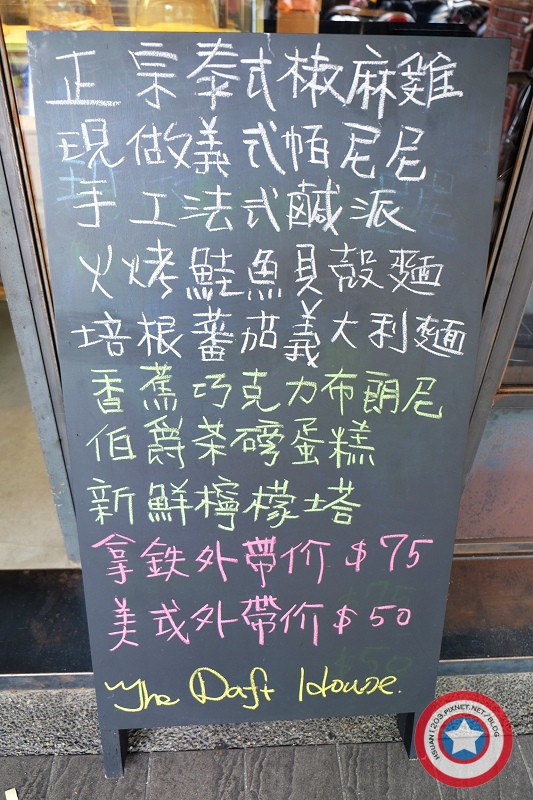 正宗泰式椒麻雞
現做義式帕尼尼
手工法式鹹派
火烤鮭魚貝殼麵
培根蕃茄義大利麵
香蕉巧克力布朗尼
伯爵茶磅蛋糕
新鮮檸檬塔
拿鉄外帶价 $75
美式外帶价 $50
The Daft House.
HSUAN1203.PIXNET.NET/BLOG